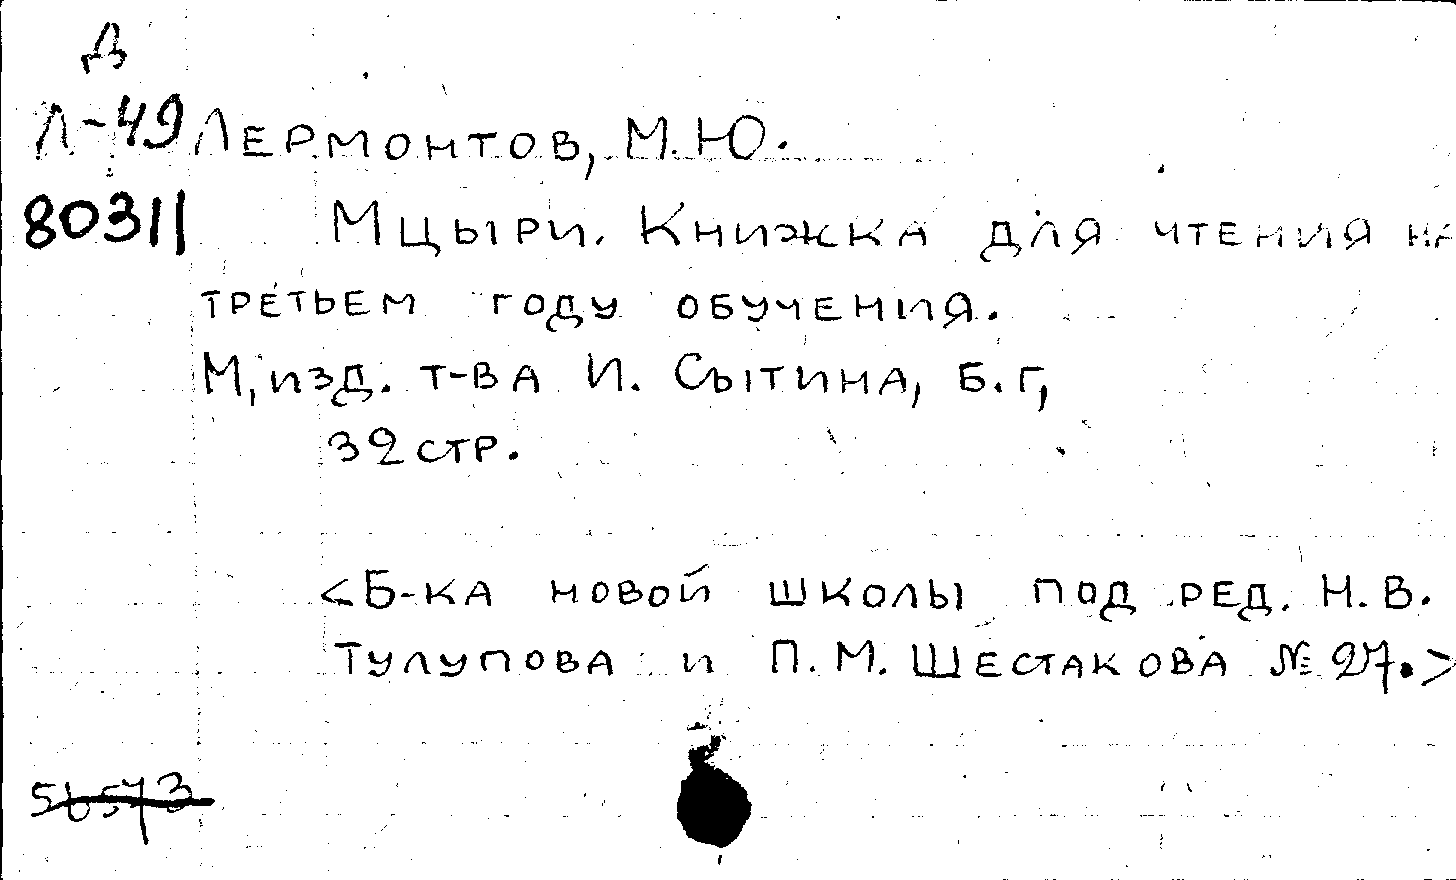 Д
Л-49 Лермонтов, М.Ю.
80311 Мцыри. Книжка для чтения на
третьем году обучения.
М, изд. т-ва И. Сытина, Б.г,
32 стр.
<Б-ка новой школы под ред. Н.В.
Тулупова и П.М. Шестакова № 27.>